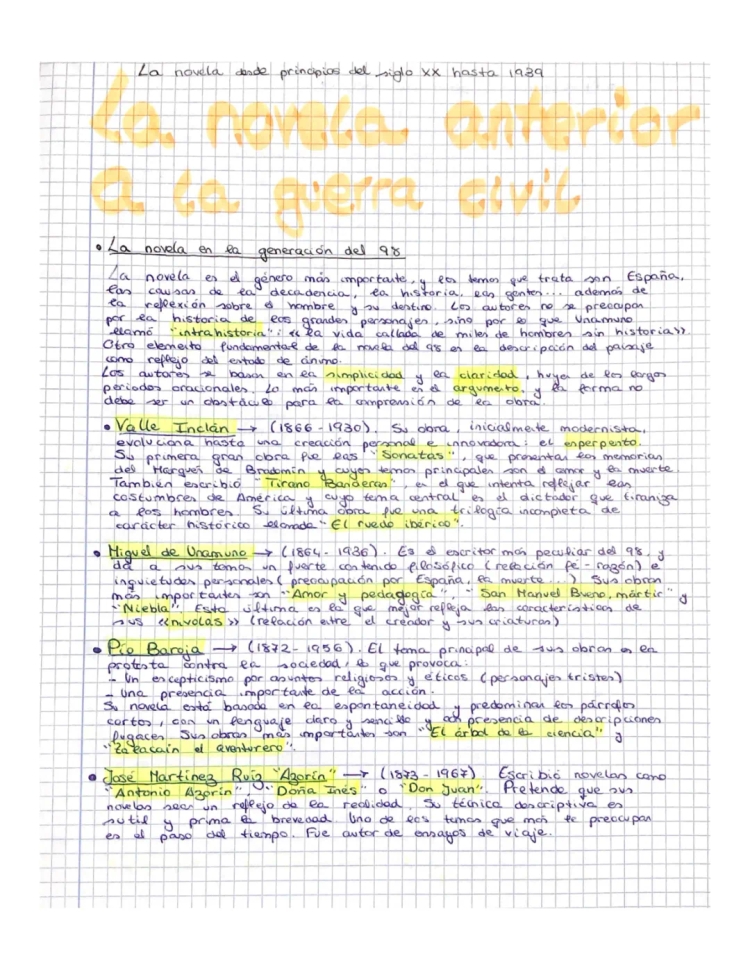 La novela desde principios del siglo XX hasta 1939
La novela anterior
a la guerra civil
• La novela en la generación del 98
La novela es el género más importante, y los temas que trata son España,
las causas de la decadencia, la historia, las gentes... además de
la reflexión sobre el hombre y su destino. Los autores no se preocupan
por la historia de los grandes personajes, sino por lo que Unamuno
llamó "intrahistoria": << la vida callada de miles de hombres sin historia>>.
Otro elemento fundamental de la novela del 98 es la descripción del paisaje
como reflejo del estado de ánimo.
Los autores se basan en la simplicidad y la claridad, huyen de los largos
periodos oracionales. Lo más importante es el argumento, y la forma no
debe ser un obstáculo para la comprensión de la obra.
• Valle Inclán → (1866-1930). Su obra, inicialmente modernista,
evoluciona hasta una creación personal e innovadora: el esperpento.
Su primera gran obra fue las "Sonatas", que presentan las memorias
del Marqués de Bradomín y cuyos temas principales son el amor y la muerte.
También escribió "Tirano Banderas", en el que intenta reflejar las
costumbres de América y cuyo tema central es el dictador que tiraniza
a los hombres. Su última obra fue una trilogía incompleta de
carácter histórico llamada "El ruedo ibérico".
• Miguel de Unamuno → (1864-1936). Es el escritor más peculiar del 98, y
da a sus temas un fuerte contenido filosófico (relación fe-razón) e
inquietudes personales (preocupación por España, la muerte...) Sus obras
más importantes son "Amor y pedagogía", "San Manuel Bueno, mártir" y
"Niebla". Esta última es la que mejor refleja las características de
sus <<nivolas>> (relación entre el creador y sus criaturas)
• Pío Baroja → (1872-1956). El tema principal de sus obras es la
protesta contra la sociedad, lo que provoca:
- Un escepticismo por asuntos religiosos y éticos (personajes tristes)
- Una presencia importante de la acción.
Su novela está basada en la espontaneidad y predominan los párrafos
cortos, con un lenguaje claro y sencillo y con presencia de descripciones
fugaces. Sus obras más importantes son "El árbol de la ciencia" y
"Zalacaín el aventurero".
• José Martínez Ruiz "Azorín" → (1873-1967). Escribió novelas como
"Antonio Azorín", "Doña Inés" o "Don Juan". Pretende que sus
novelas sean un reflejo de la realidad. Su técnica descriptiva es
sutil y prima la brevedad. Uno de los temas que más le preocupan
es el paso del tiempo. Fue autor de ensayos de viaje.